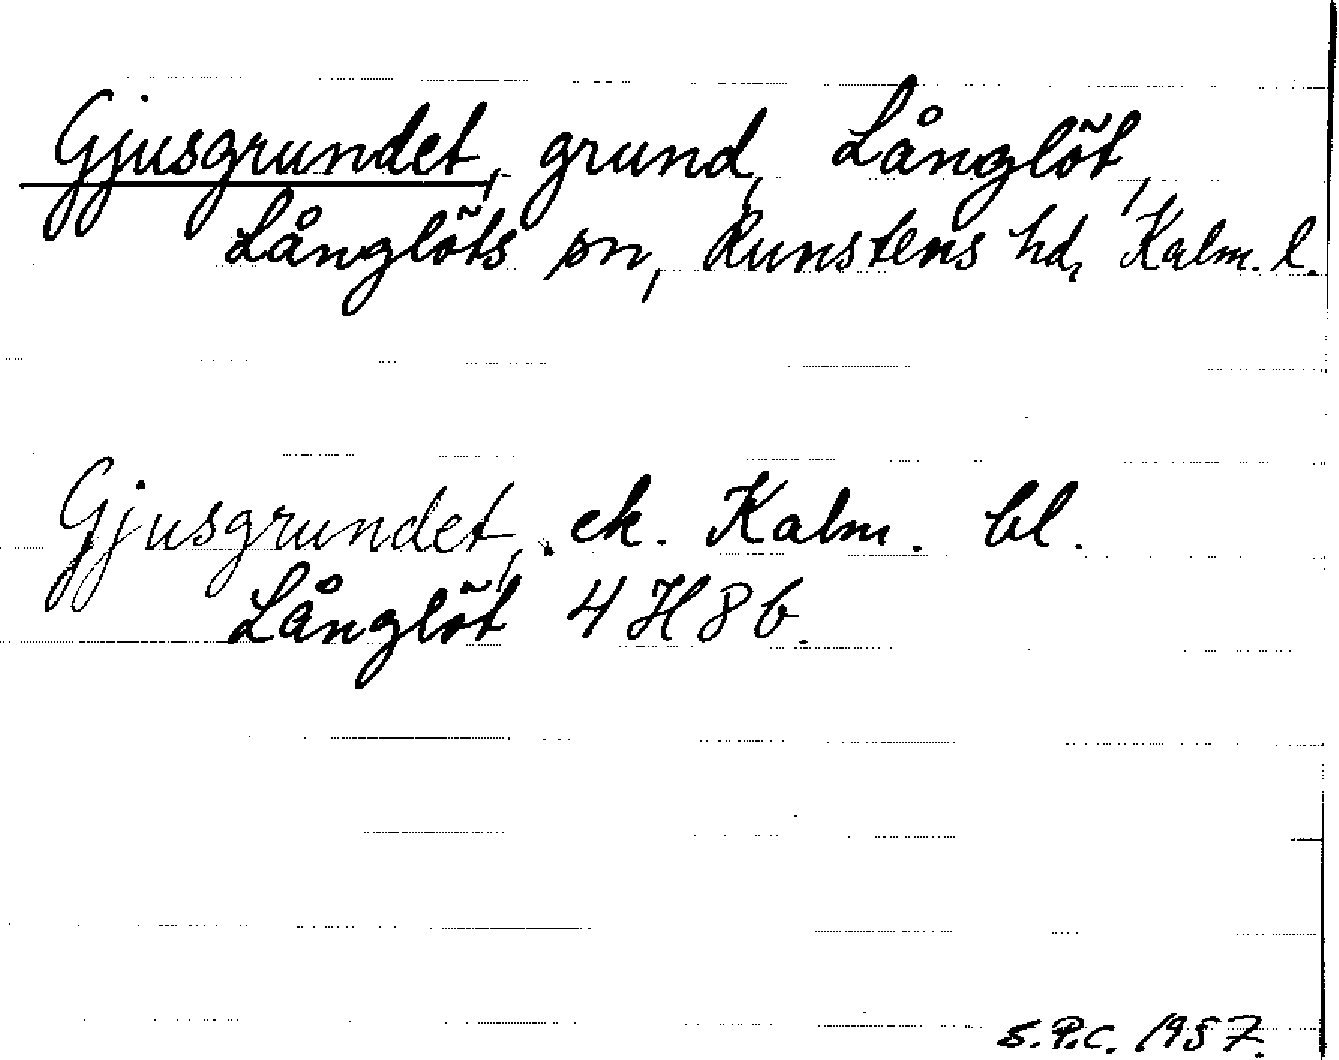 Gjusgrundet, grund, Långlöt,
Långlöts sn, Runstens hd, Kalm. l.
Gjusgrundet, ek. Kalm. bl.
Långlöt 4 H 8 b.
S.P.C. 1957.